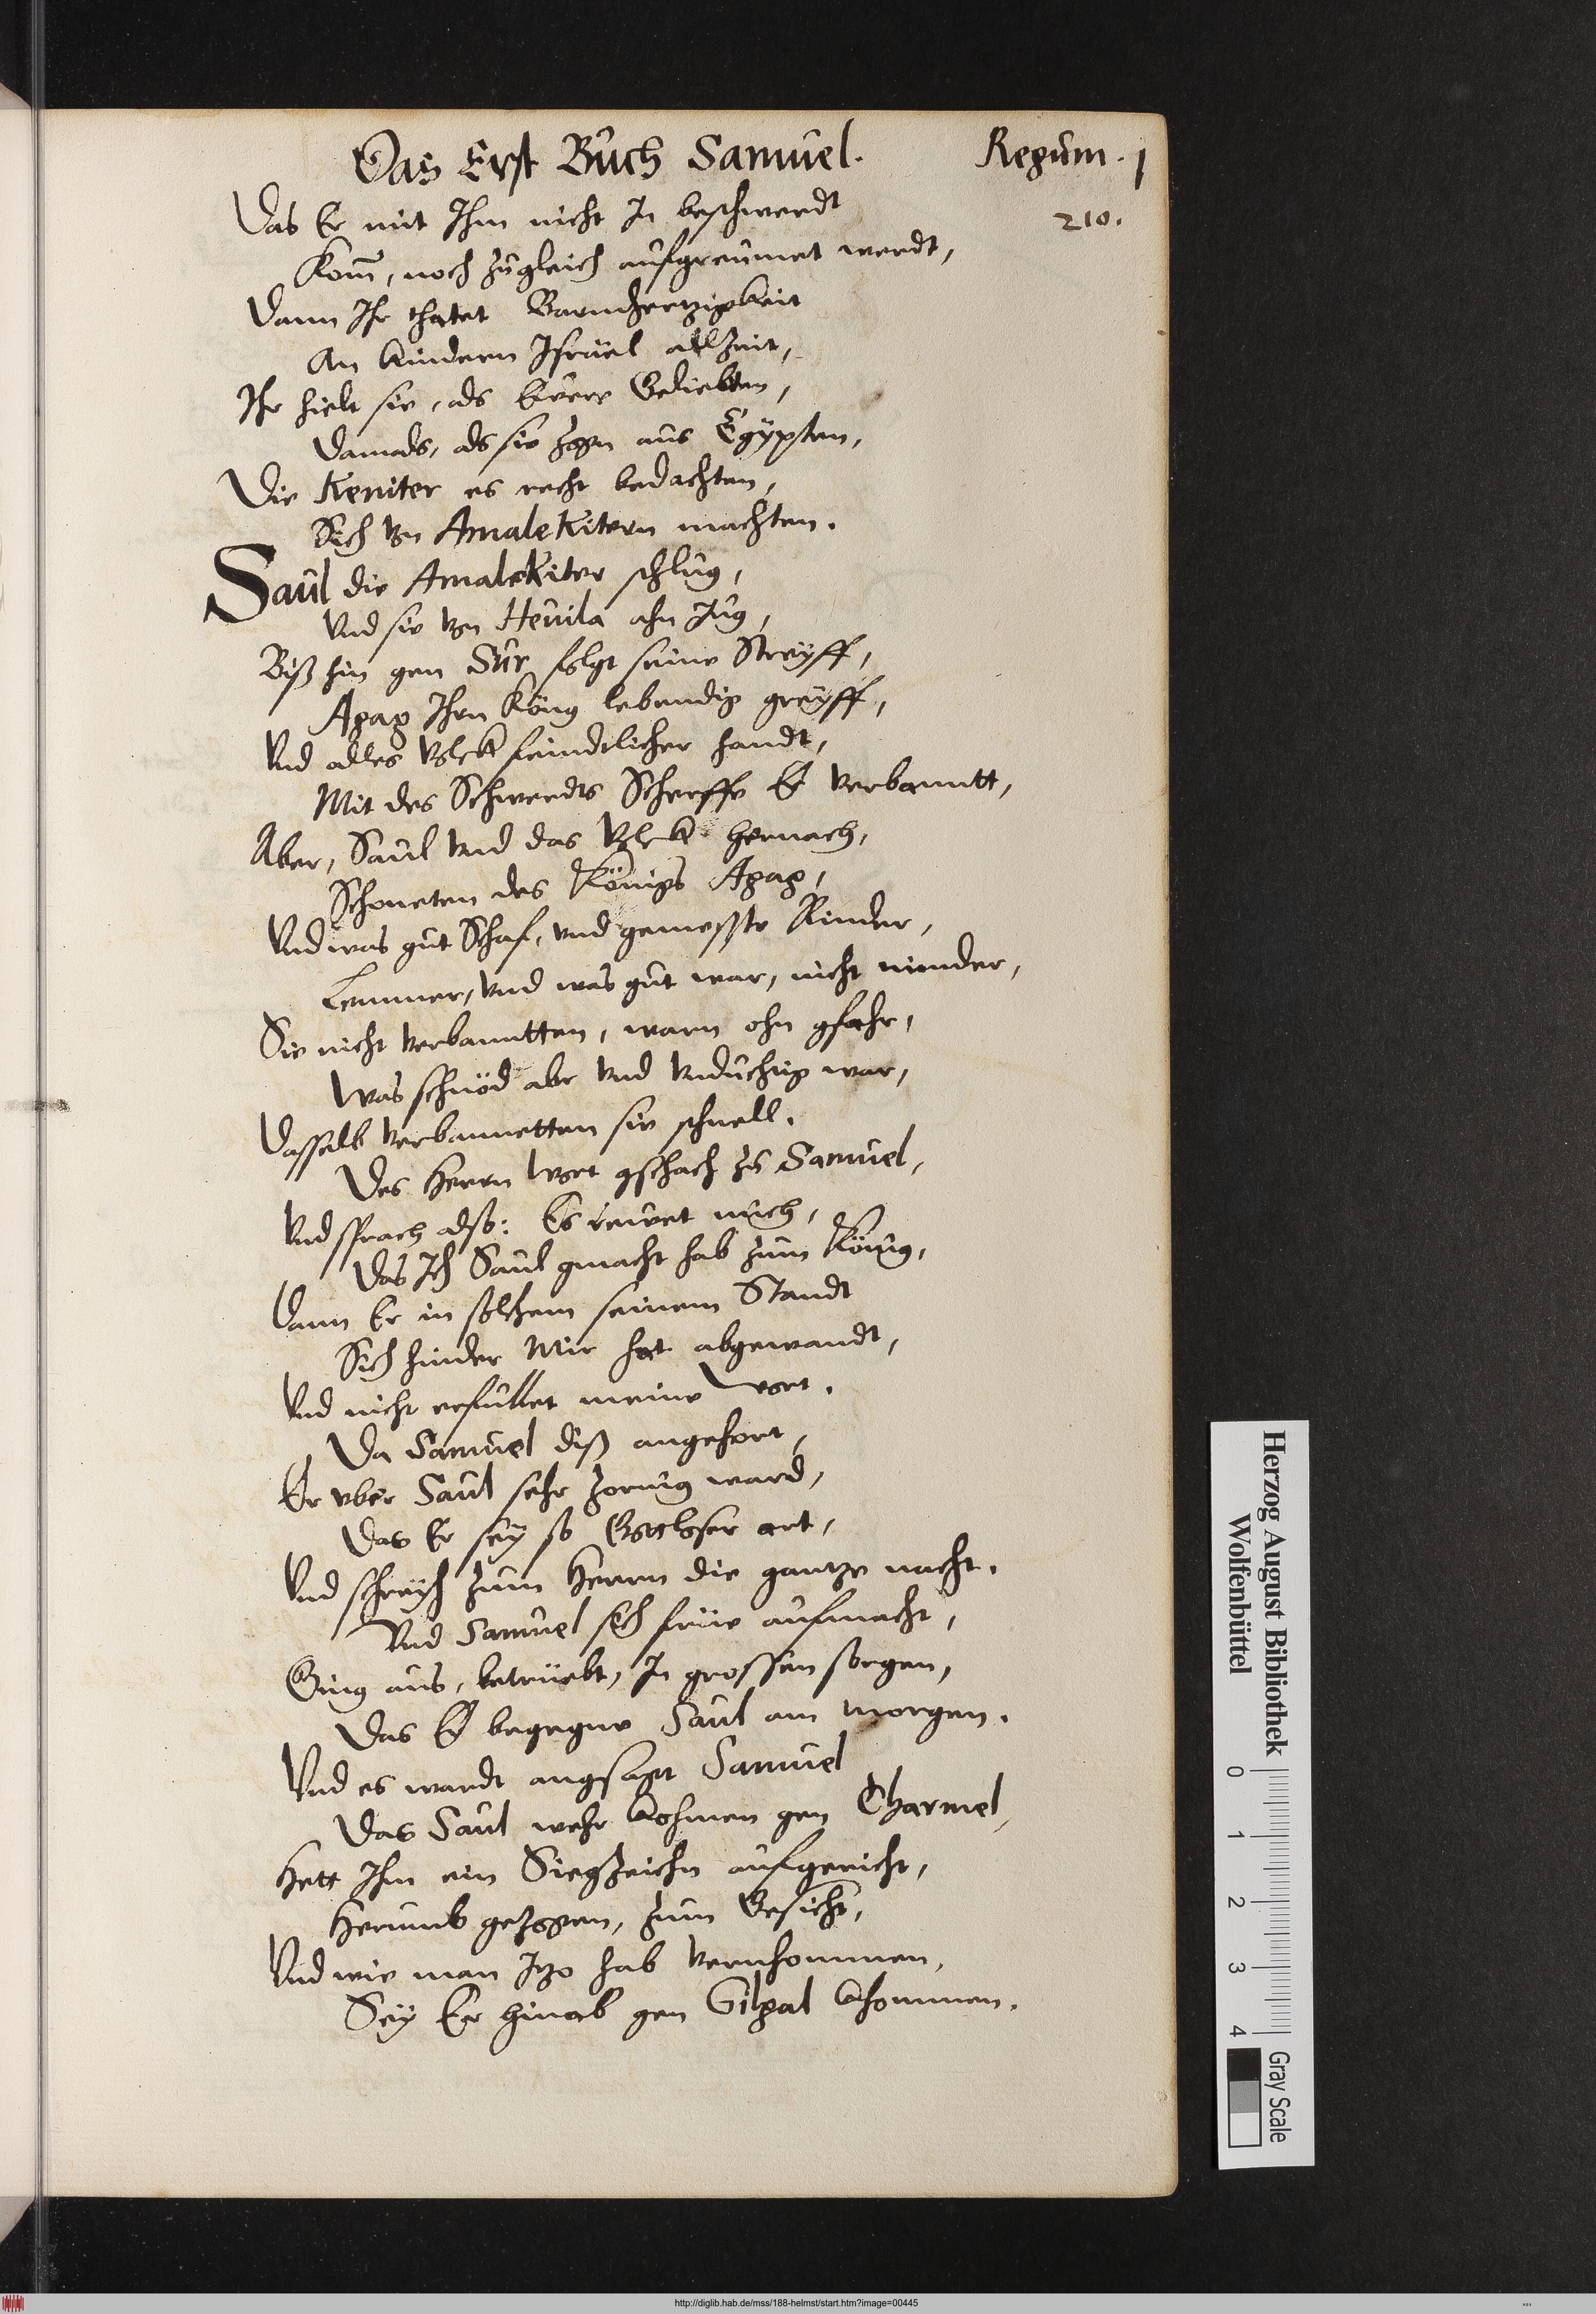 Das Erst Buch Samuel.
Regum. 1
210.
Das Er mit Ihm nicht In beschwerdt
Kom̃, noch zugleich aufgreumet werdt,
Dann Ihr thatet Barmhertzigkeit
An kindern Israël allzeit,
Ihr hielt sie, als Eurer Geliebten,
Damals, als sie zogn aus Egÿpten,
Die Keniter es recht bedachten,
Sich von Amalekitern machten.
Saul die Amalekiter schlug,
Vnd sie von Heuila ahn Jug,
Biß hin gen Sur folgt seine Streÿff,
Agag Ihrn König lebendig greÿff,
Vnd alles Volck feindtlicher handt,
Mit des Schwerdts Scherffe Er verbanntt,
Aber, Saul vnd das Volck hernach,
Schoneten des Königs Agag,
Vnd was gut Schaf, vnd gemeste Rinder,
Lemmer, vnd was gut war, nicht minder,
Sie nicht verbanntten, warn ohn gfahr,
Was schnöd abr vnd vnduchtig war,
Dasselb verbannetten sie schnell.
Des Herrn Wort gschach zu Samuel,
Vnd sprach also: Es reuet mich,
Das Ich Saul gmacht hab zum König,
Dann Er in solchem seinem Standt
Sich hinder Mir hat abgewandt,
Vnd nicht erfullet meine Wort.
Da Samuel diß angehort,
Er vber Saul sehr zornig ward,
Das Er seÿ so Gottloser art,
Vnd schreÿh zum Herrn die gantze nacht.
Vnd Samuel sich früe aufmacht,
Ging aus, betrüebt, In grossen sorgen,
Das Er begegne Saul am morgen.
Vnd es wardt angsagt Samuel
Das Saul wehr kohmen gen Charmel,
Hett Ihm ein Siegzeichn aufgericht,
Herumb gezogen, zum Gesicht,
Vnd wie man Itzo hab vernhommen,
Seÿ Er hinab gen Gilgal khommen.
Herzog August Bibliothek
Wolfenbüttel
0 1 2 3 4
Gray Scale
http://diglib.hab.de/mss/188-helmst/start.htm?image=00445